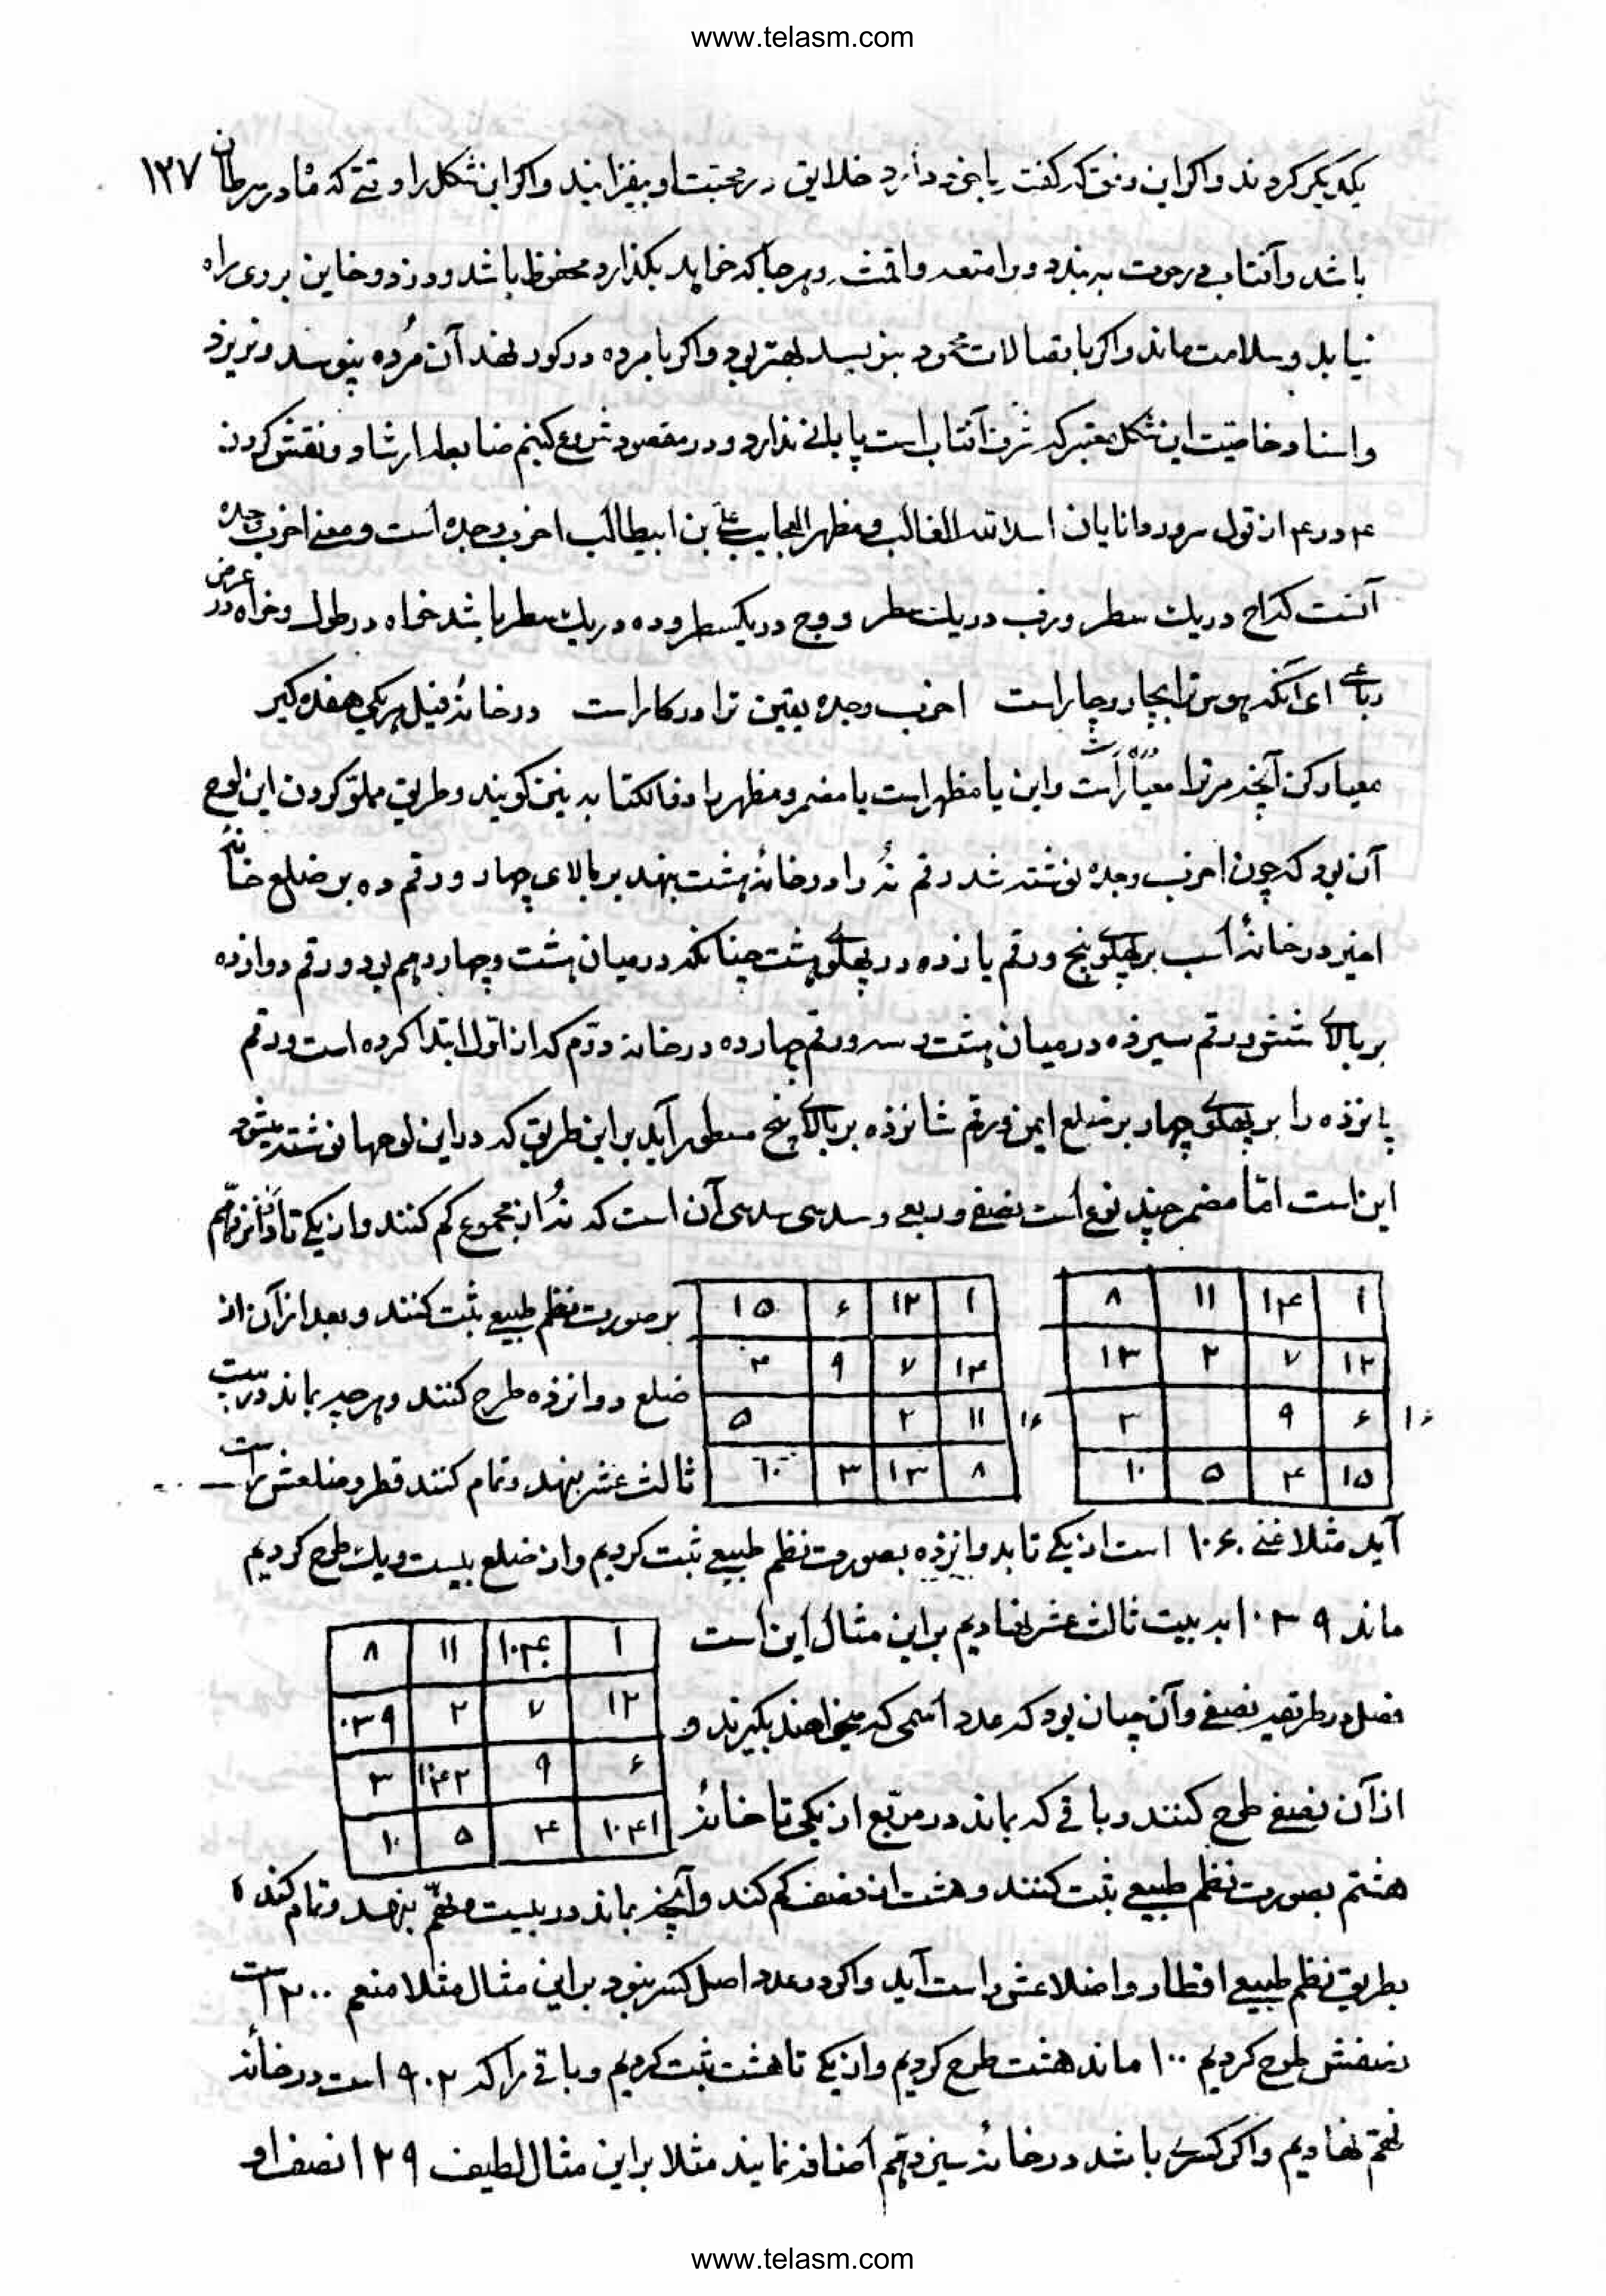 www.telasm.com
یکدیکر کردند واکر این وفق که کفته با خود دارد خلایق در محبت او بیفزایند واکر این شکل را وقتی که ماه در سرطان ۱۲۷
باشد وآفتاب در حوت به بندد و در امتعه واقمشه وهرجا که خواهد بکذارد محفوظ باشد ودزد وخاین بر وی راه
نیابد وسلامت ماند واکر باتصالات محمود بنویسد بهتر بود واکر با مرده در کور نهند آن مُرده نپوسد ونریزد
واسناد وخاصیت این شکل معتبر که شرف آفتاب است پایانی ندارد ودر مقصود شروع کنیم ضابطه ارشاد ونقش کردن
۴ در ۴ از قول سرور دانایان اسد الله الغالب ومظهر العجایب علی بن ابیطالب اخرب وجده است ومعنی اخرب وجده
آنست که اح در یك سطر ورب در یك سطر ووج در یکسطر وده در یك سطر باشد خواه در طول وخواه در عرض
رباعی ای آنکه هوس ترا بچار در چار است اخرب وجده یقین ترا در کار است در خانهٔ فیل هر یکی هفده کیر
معیار کن آنچه مر ترا معیار است واین یا مظهر است یا مضمر ومظهر را وفا لکتابه نیز کویند وطریق مملو کردن این لوح
آن بود که چون اخرب وجده نوشته شد رقم نُه را در خانهٔ هشت بنهد بر بالای چهار ورقم ده بر ضلع خانهٔ
اخیر در خانهٔ اسب بر پهلوی پنج ورقم یازده در پهلوی هشت چنانکه در میان هشت وچهاردهم بود ورقم دوازده
بر بالای شش ورقم سیزده در میان هشت و سه ورقم چهارده در خانهٔ دوّم که از اول ابتدا کرده است ورقم
پانزده را بر پهلوی چهار بر ضلع ایمن ورقم شانزده بر بالای پنج مسطور آید بر این طریق که در این لوحها نوشته میشود
این است امّا مضمر چند نوع است نصفی وربعی و سدسی سدسی آن است که نُه از مجموع کم کنند واز یکی تا دوانزدهم
بر صورت نظم طبیعی ثبت کنند وبعد از آن از
ضلع دوانزده طرح کنند وهر چه بماند در بیت
ثالث عشر بنهد وتمام کنند قطر وضلعش راست
۸ ۱۱ ۱۴ ۱
۱۳ ۲ ۷ ۱۲
۳ ۹ ۶ ۱۶
۱۰ ۵ ۴ ۱۵
۱۵ ۶ ۱۲ ۱
۴ ۹ ۷ ۱۴
۵ ۲ ۱۱ ۱۶
۱۰ ۳ ۱۳ ۸
آید مثلا غنی ۱۰۶۰ است از یکی تا بدوانزده بصورت نظم طبیعی ثبت کردیم واز ضلع بیست ویك طرح کردیم
ماند ۱۰۳۹ به بیت ثالث عشر نهادیم بر این مثال این است
۸ ۱۱ ۱۰۴۰ ۱
۰۳۹ ۲ ۷ ۱۲
۳ ۱۰۴۲ ۹ ۶
۱۰ ۵ ۴ ۱۰۴۱
فصل در طریقه نصفی وآن چنان بود که عدد اسمی که میخواهند بکیرند و
از آن نصفی طرح کنند وباقی که بماند در مربّع از یکی تا خانهٔ
هشتم بصورت نظم طبیعی ثبت کنند وهشت از نصف کم کند وآنچه بماند در بیت نهم بنهد وتمام کند
بطریق نظم طبیعی اقطار واضلاعش راست آید واکر در عدد اصل کسر نبود بر این مثال مثلا منعم ۲۰۰ است
نصفش طرح کردیم ۱۰۰ ماند هشت طرح کردیم واز یکی تا هشت ثبت کردیم وباقی را که ۹۰۲ است در خانهٔ
نهم نهادیم واکر کسری باشد در خانهٔ سیزدهم اضافه نمایند مثلا بر این مثال لطیف ۱۲۹ نصف او
www.telasm.com